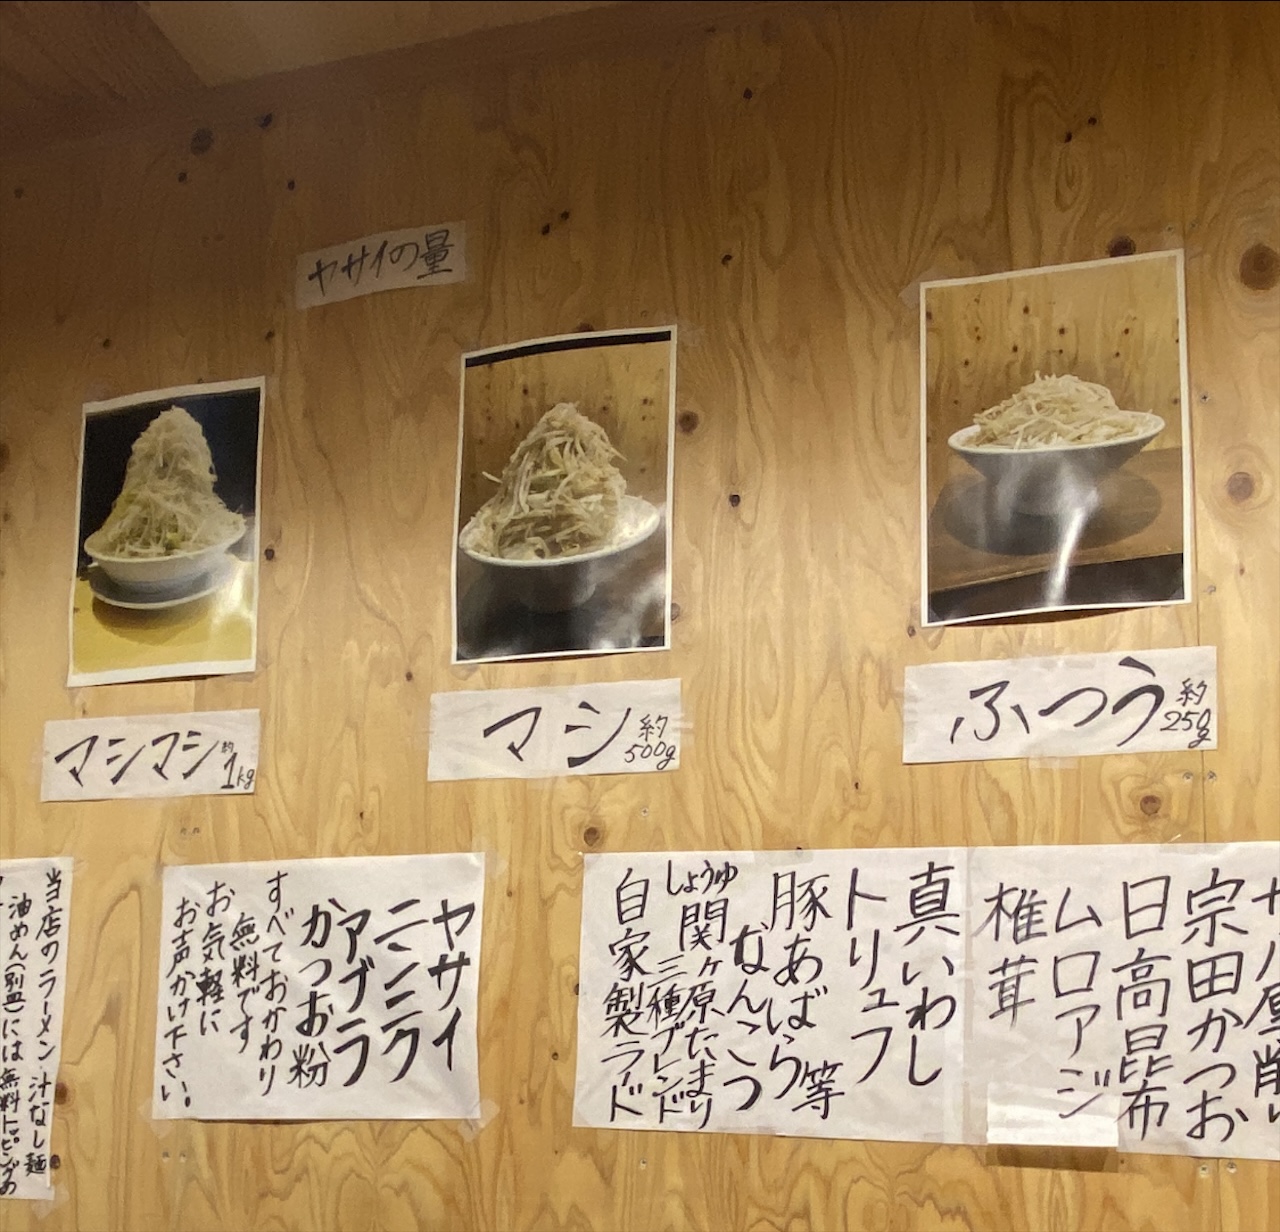 ヤサイの量
マシマシ 約1kg
マシ 約500g
ふつう 約250g
宗田かつお
日高昆布
ムロアジ
椎茸
真いわし
トリュフ
豚あばら 等
なんこつ
しょうゆ
関ヶ原たまり
三種ブレンド
自家製ラード
ヤサイ
ニンニク
アブラ
かつお粉
すべておかわり
無料です
お気軽に
お声かけ下さい。
当店のラーメン・汁なし麺
油めん(別皿)には無料トッピングの